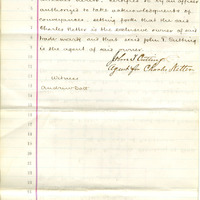 authorized to take acknowledgments of
conveyances, setting forth that the said
Charles Netter is the exclusive owner of said
trade mark and that said John T. Cutting
is the agent of said owner.
John T Cutting
Agent for Charles Netter
Witness
Andrew